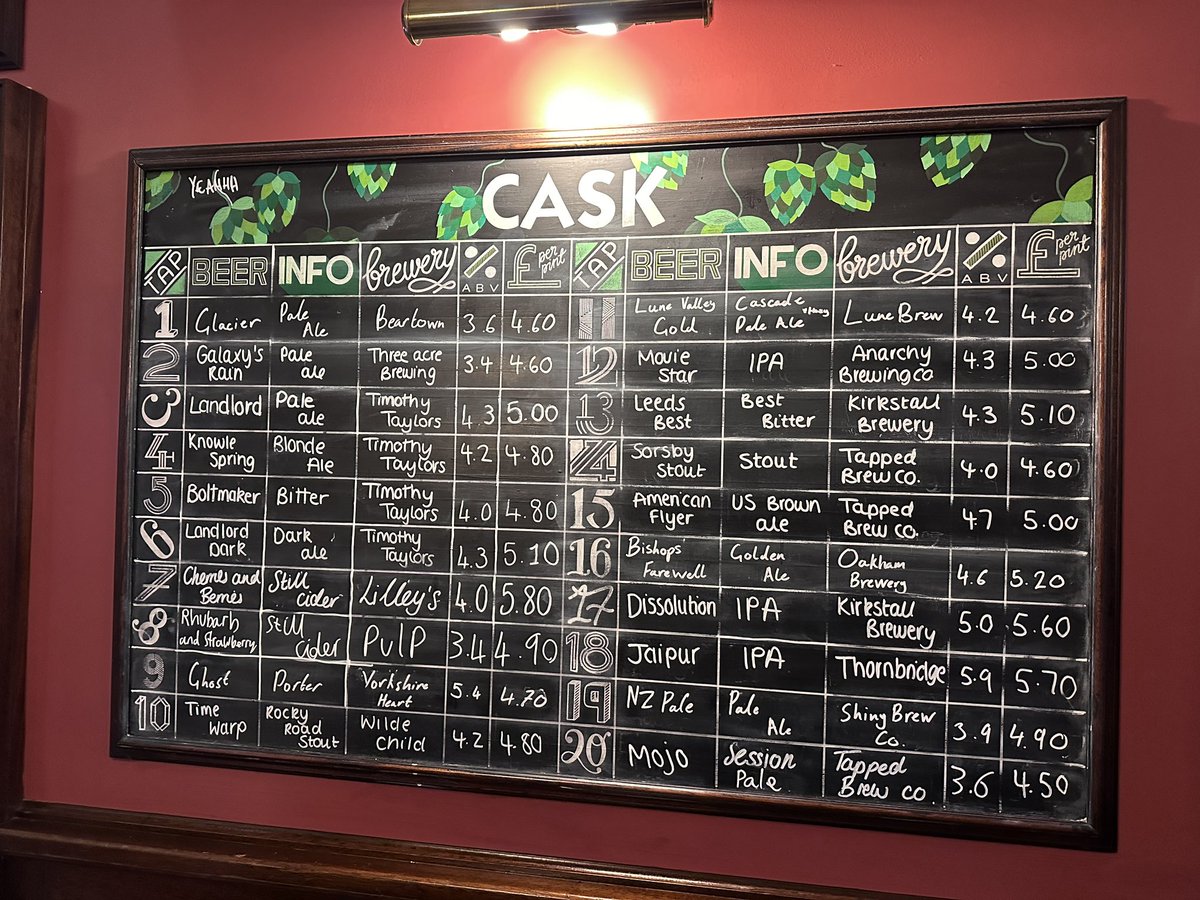 YEAHHA
CASK
TAP BEER INFO brewery % ABV £ per pint TAP BEER INFO brewery % ABV £ per pint
1 Glacier Pale Ale Beartown 3.6 4.60
2 Galaxy's Rain Pale ale Three acre Brewing 3.4 4.60
3 Landlord Pale ale Timothy Taylors 4.3 5.00
4 Knowle Spring Blonde Ale Timothy Taylors 4.2 4.80
5 Boltmaker Bitter Timothy Taylors 4.0 4.80
6 Landlord Dark Dark ale Timothy Taylors 4.3 5.10
7 Cherries and Berries Still Cider Lilley's 4.0 5.80
8 Rhubarb and Strawberry Still Cider PULP 3.4 4.90
9 Ghost Porter Yorkshire Heart 5.4 4.70
10 Time Warp Rocky Road Stout Wilde Child 4.2 4.80
11 Lune Valley Gold Cascade Pale Ale Lune Brew 4.2 4.60
12 Movie Star IPA Anarchy Brewing co 4.3 5.00
13 Leeds Best Best Bitter Kirkstall Brewery 4.3 5.10
14 Sorsby Stout Stout Tapped Brew Co. 4.0 4.60
15 American Flyer US Brown ale Tapped Brew Co. 4.7 5.00
16 Bishops' Farewell Golden Ale Oakham Brewery 4.6 5.20
17 Dissolution IPA Kirkstall Brewery 5.0 5.60
18 Jaipur IPA Thornbridge 5.9 5.70
19 NZ Pale Pale Ale Shiny Brew Co. 3.9 4.90
20 Mojo Session Pale Tapped Brew co. 3.6 4.50